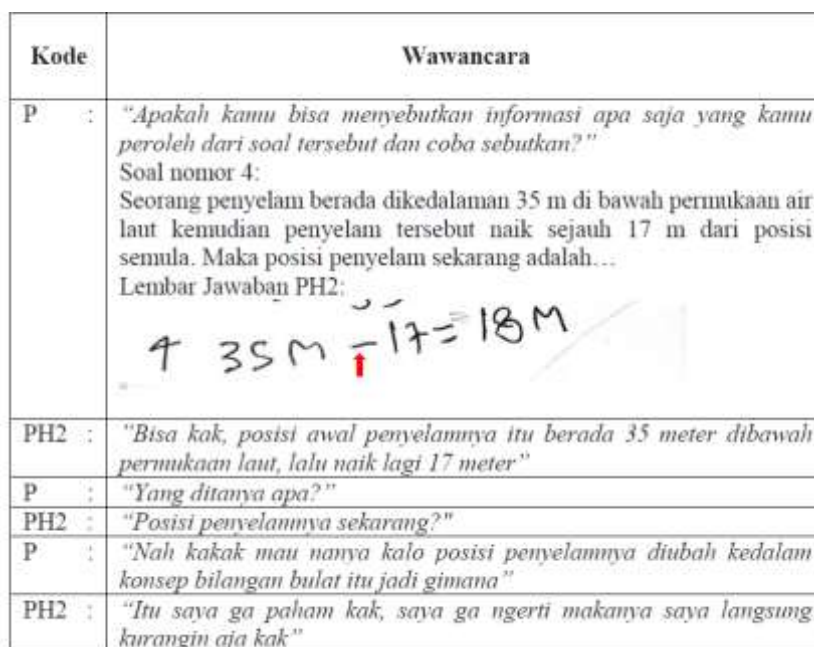 Kode Wawancara
P : "Apakah kamu bisa menyebutkan informasi apa saja yang kamu
peroleh dari soal tersebut dan coba sebutkan?"
Soal nomor 4:
Seorang penyelam berada dikedalaman 35 m di bawah permukaan air
laut kemudian penyelam tersebut naik sejauh 17 m dari posisi
semula. Maka posisi penyelam sekarang adalah…
Lembar Jawaban PH2:
4 35 M - 17 = 18 M
PH2 : "Bisa kak, posisi awal penyelamnya itu berada 35 meter dibawah
permukaan laut, lalu naik lagi 17 meter"
P : "Yang ditanya apa?"
PH2 : "Posisi penyelamnya sekarang?"
P : "Nah kakak mau nanya kalo posisi penyelamnya diubah kedalam
konsep bilangan bulat itu jadi gimana"
PH2 : "Itu saya ga paham kak, saya ga ngerti makanya saya langsung
kurangin aja kak"